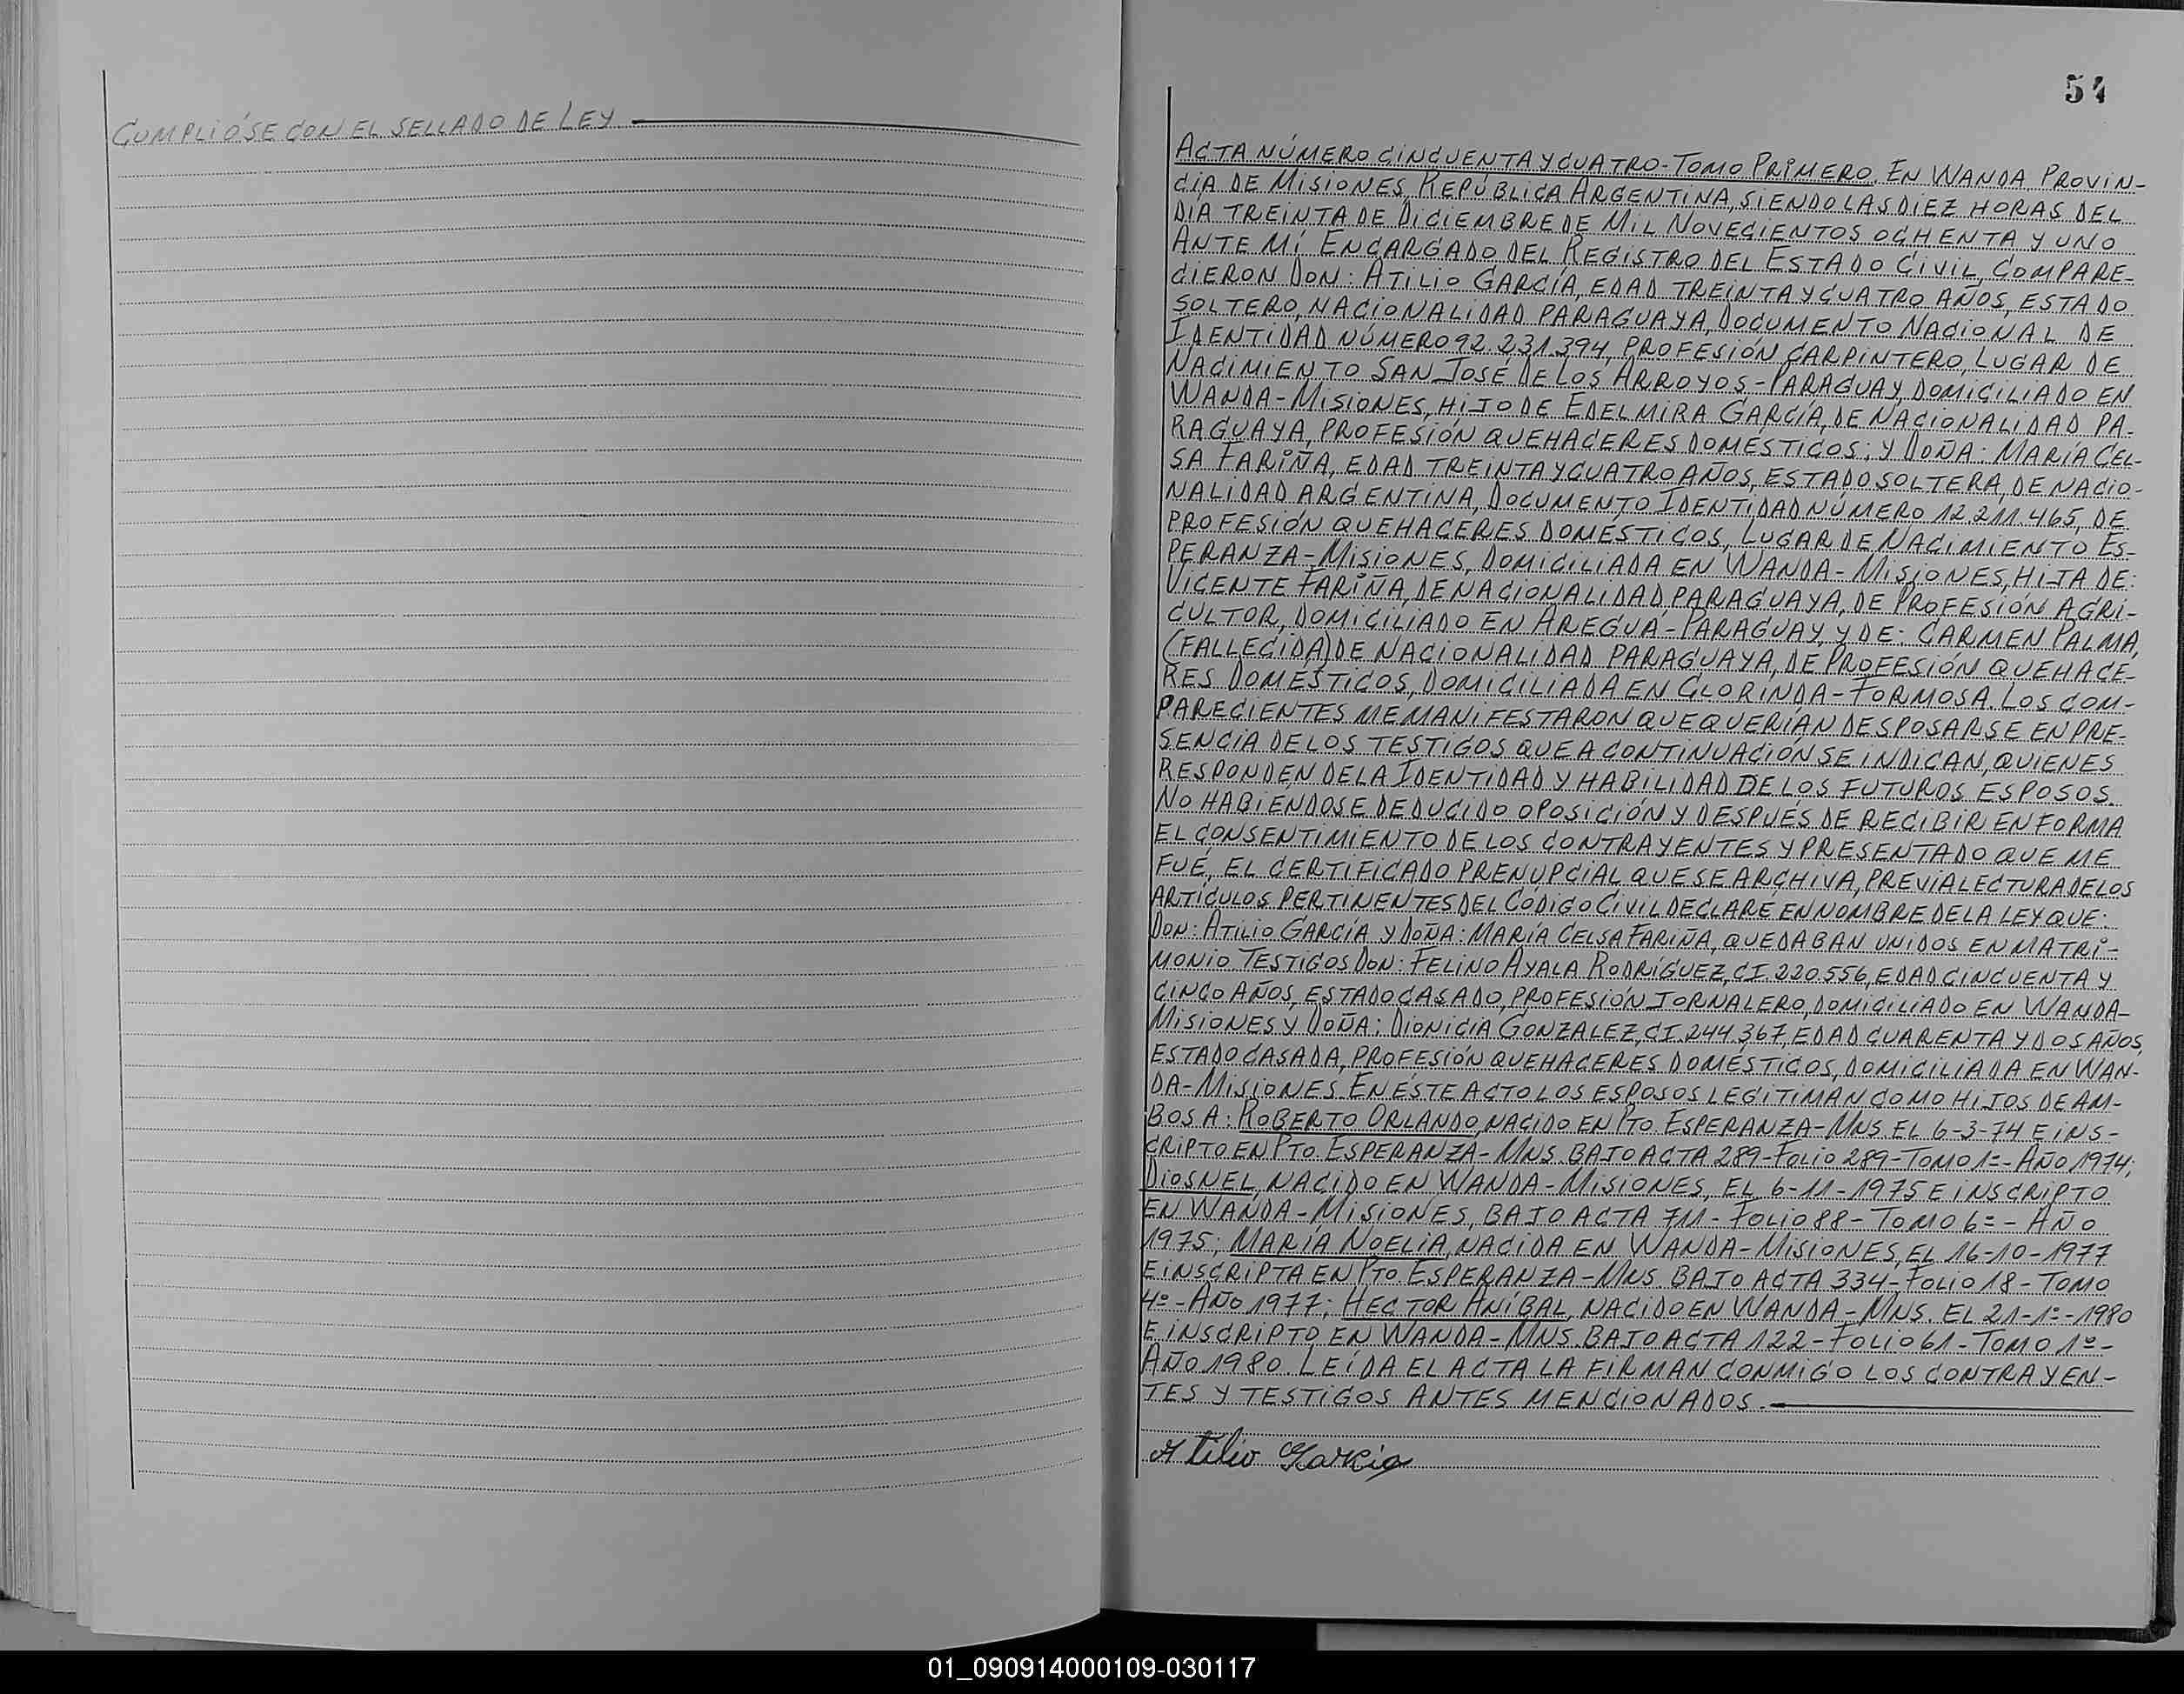 CUMPLIÓSE CON EL SELLADO DE LEY.
54
ACTA NÚMERO CINCUENTA Y CUATRO - TOMO PRIMERO. EN WANDA PROVIN-
CIA DE MISIONES, REPÚBLICA ARGENTINA, SIENDO LAS DIEZ HORAS DEL
DÍA TREINTA DE DICIEMBRE DE MIL NOVECIENTOS OCHENTA Y UNO
ANTE MÍ ENCARGADO DEL REGISTRO DEL ESTADO CIVIL, COMPARE-
CIERON DON: ATILIO GARCÍA, EDAD TREINTA Y CUATRO AÑOS, ESTADO
SOLTERO, NACIONALIDAD PARAGUAYA, DOCUMENTO NACIONAL DE
IDENTIDAD NÚMERO 92.231.394, PROFESIÓN CARPINTERO, LUGAR DE
NACIMIENTO SAN JOSÉ DE LOS ARROYOS - PARAGUAY, DOMICILIADO EN
WANDA - MISIONES, HIJO DE EDELMIRA GARCÍA, DE NACIONALIDAD PA-
RAGUAYA, PROFESIÓN QUEHACERES DOMÉSTICOS; Y DOÑA: MARÍA CEL-
SA FARIÑA, EDAD TREINTA Y CUATRO AÑOS, ESTADO SOLTERA, DE NACIO-
NALIDAD ARGENTINA, DOCUMENTO IDENTIDAD NÚMERO 12.211.465, DE
PROFESIÓN QUEHACERES DOMÉSTICOS, LUGAR DE NACIMIENTO ES-
PERANZA - MISIONES, DOMICILIADA EN WANDA - MISIONES, HIJA DE:
VICENTE FARIÑA, DE NACIONALIDAD PARAGUAYA, DE PROFESIÓN AGRI-
CULTOR, DOMICILIADO EN AREGUA - PARAGUAY, Y DE: CARMEN PALMA,
(FALLECIDA) DE NACIONALIDAD PARAGUAYA, DE PROFESIÓN QUEHACE-
RES DOMÉSTICOS, DOMICILIADA EN CLORINDA - FORMOSA. LOS COM-
PARECIENTES ME MANIFESTARON QUE QUERÍAN DESPOSARSE EN PRE-
SENCIA DE LOS TESTIGOS QUE A CONTINUACIÓN SE INDICAN, QUIENES
RESPONDEN DE LA IDENTIDAD Y HABILIDAD DE LOS FUTUROS ESPOSOS.
NO HABIENDOSE DEDUCIDO OPOSICIÓN Y DESPUÉS DE RECIBIR EN FORMA
EL CONSENTIMIENTO DE LOS CONTRAYENTES Y PRESENTADO QUE ME
FUÉ, EL CERTIFICADO PRENUPCIAL QUE SE ARCHIVA, PREVIA LECTURA DE LOS
ARTÍCULOS PERTINENTES DEL CÓDIGO CIVIL DECLARE EN NOMBRE DE LA LEY QUE:
DON: ATILIO GARCÍA Y DOÑA: MARÍA CELSA FARIÑA, QUEDABAN UNIDOS EN MATRI-
MONIO TESTIGOS DON: FELINO AYALA RODRÍGUEZ, C.I. 220.556, EDAD CINCUENTA Y
CINCO AÑOS, ESTADO CASADO, PROFESIÓN JORNALERO, DOMICILIADO EN WANDA-
MISIONES Y DOÑA: DIONICIA GONZALEZ, C.I. 244.367, EDAD CUARENTA Y DOS AÑOS,
ESTADO CASADA, PROFESIÓN QUEHACERES DOMÉSTICOS, DOMICILIADA EN WAN-
DA - MISIONES. EN ÉSTE ACTO LOS ESPOSOS LEGITIMAN COMO HIJOS DE AM-
BOS A: ROBERTO ORLANDO, NACIDO EN PTO. ESPERANZA - MNS. EL 6-3-74 E INS-
CRIPTO EN PTO. ESPERANZA - MNS. BAJO ACTA 289 - FOLIO 289 - TOMO 1º - AÑO 1974;
DIOSNEL, NACIDO EN WANDA - MISIONES, EL 6-11-1975 E INSCRIPTO
EN WANDA - MISIONES, BAJO ACTA 711 - FOLIO 88 - TOMO 6º - AÑO
1975; MARÍA NOELIA, NACIDA EN WANDA - MISIONES, EL 16-10-1977
E INSCRIPTA EN PTO. ESPERANZA - MNS. BAJO ACTA 334 - FOLIO 18 - TOMO
4º - AÑO 1977; HECTOR ANÍBAL, NACIDO EN WANDA - MNS. EL 21-1º-1980
E INSCRIPTO EN WANDA - MNS. BAJO ACTA 122 - FOLIO 61 - TOMO 1º -
AÑO 1980. LEÍDA EL ACTA LA FIRMAN CONMIGO LOS CONTRAYEN-
TES Y TESTIGOS ANTES MENCIONADOS.
Atilio Garcia
01_090914000109-030117